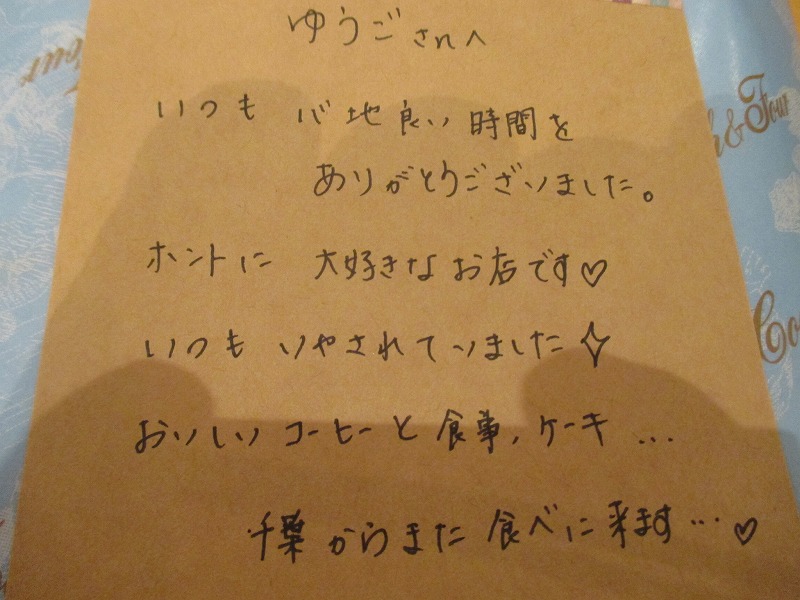 ゆうごさんへ
いつも 心地良い時間を
ありがとうございました。
ホントに 大好きなお店です♡
いつも いやされていました✧
おいしいコーヒーと食事、ケーキ...
千葉からまた食べに来ます...♡
&Four
Co